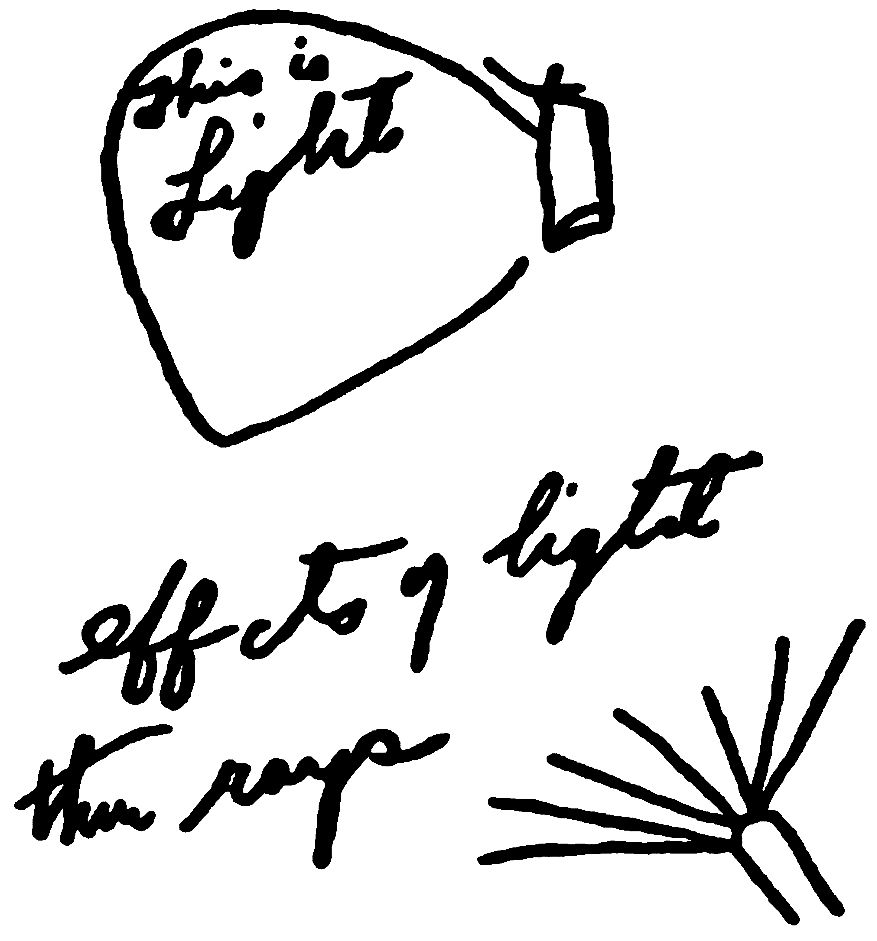 This is
Light
effects of light
thru rays